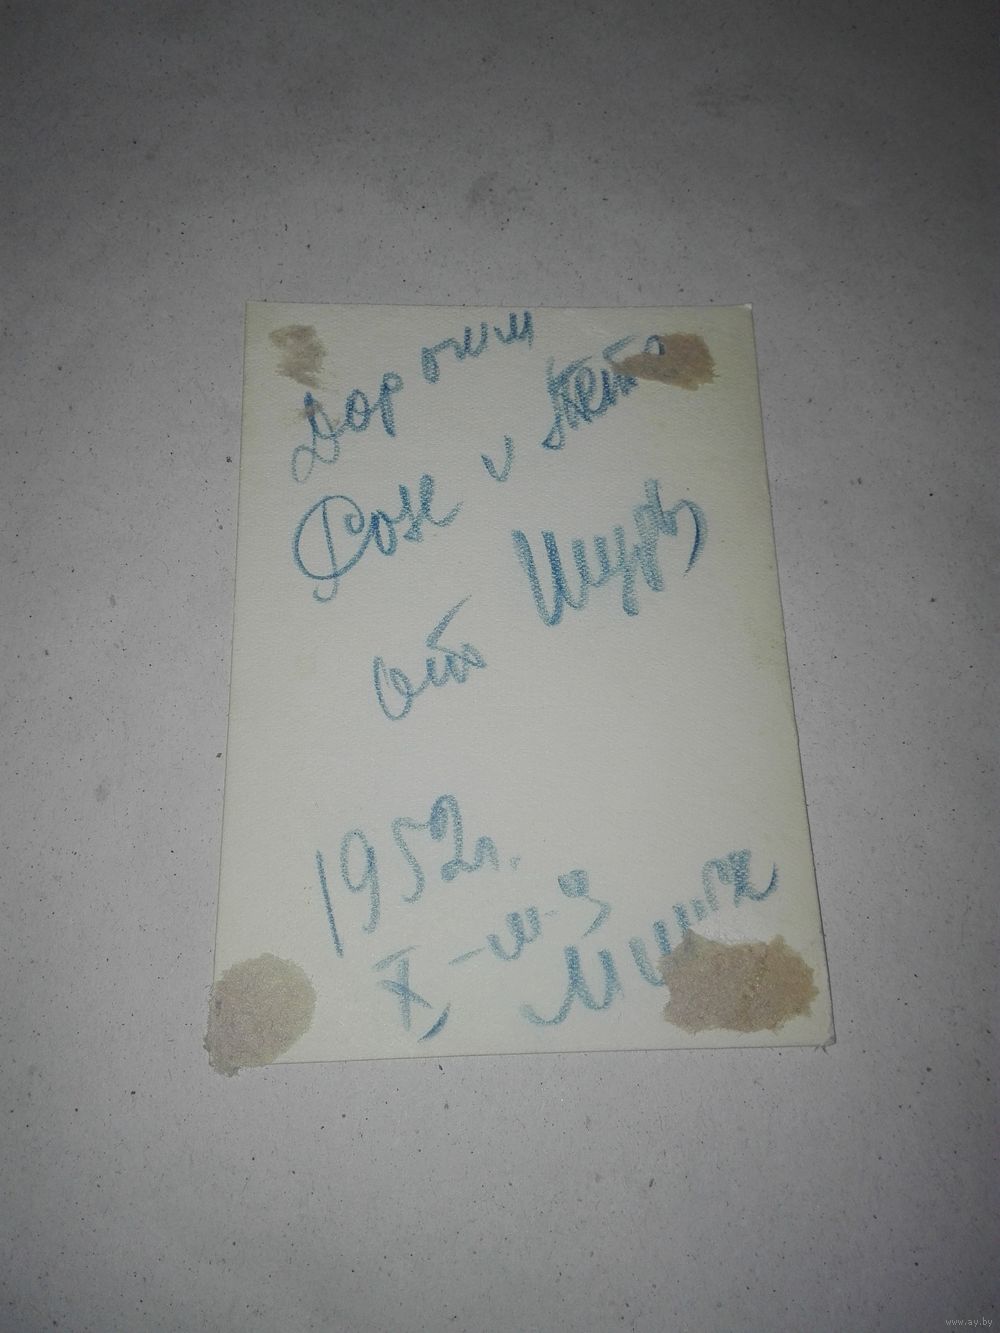 Дорогим
Розе и Пете
от Шуры
1952г.
X-м-ц
Минск
www.ay.by